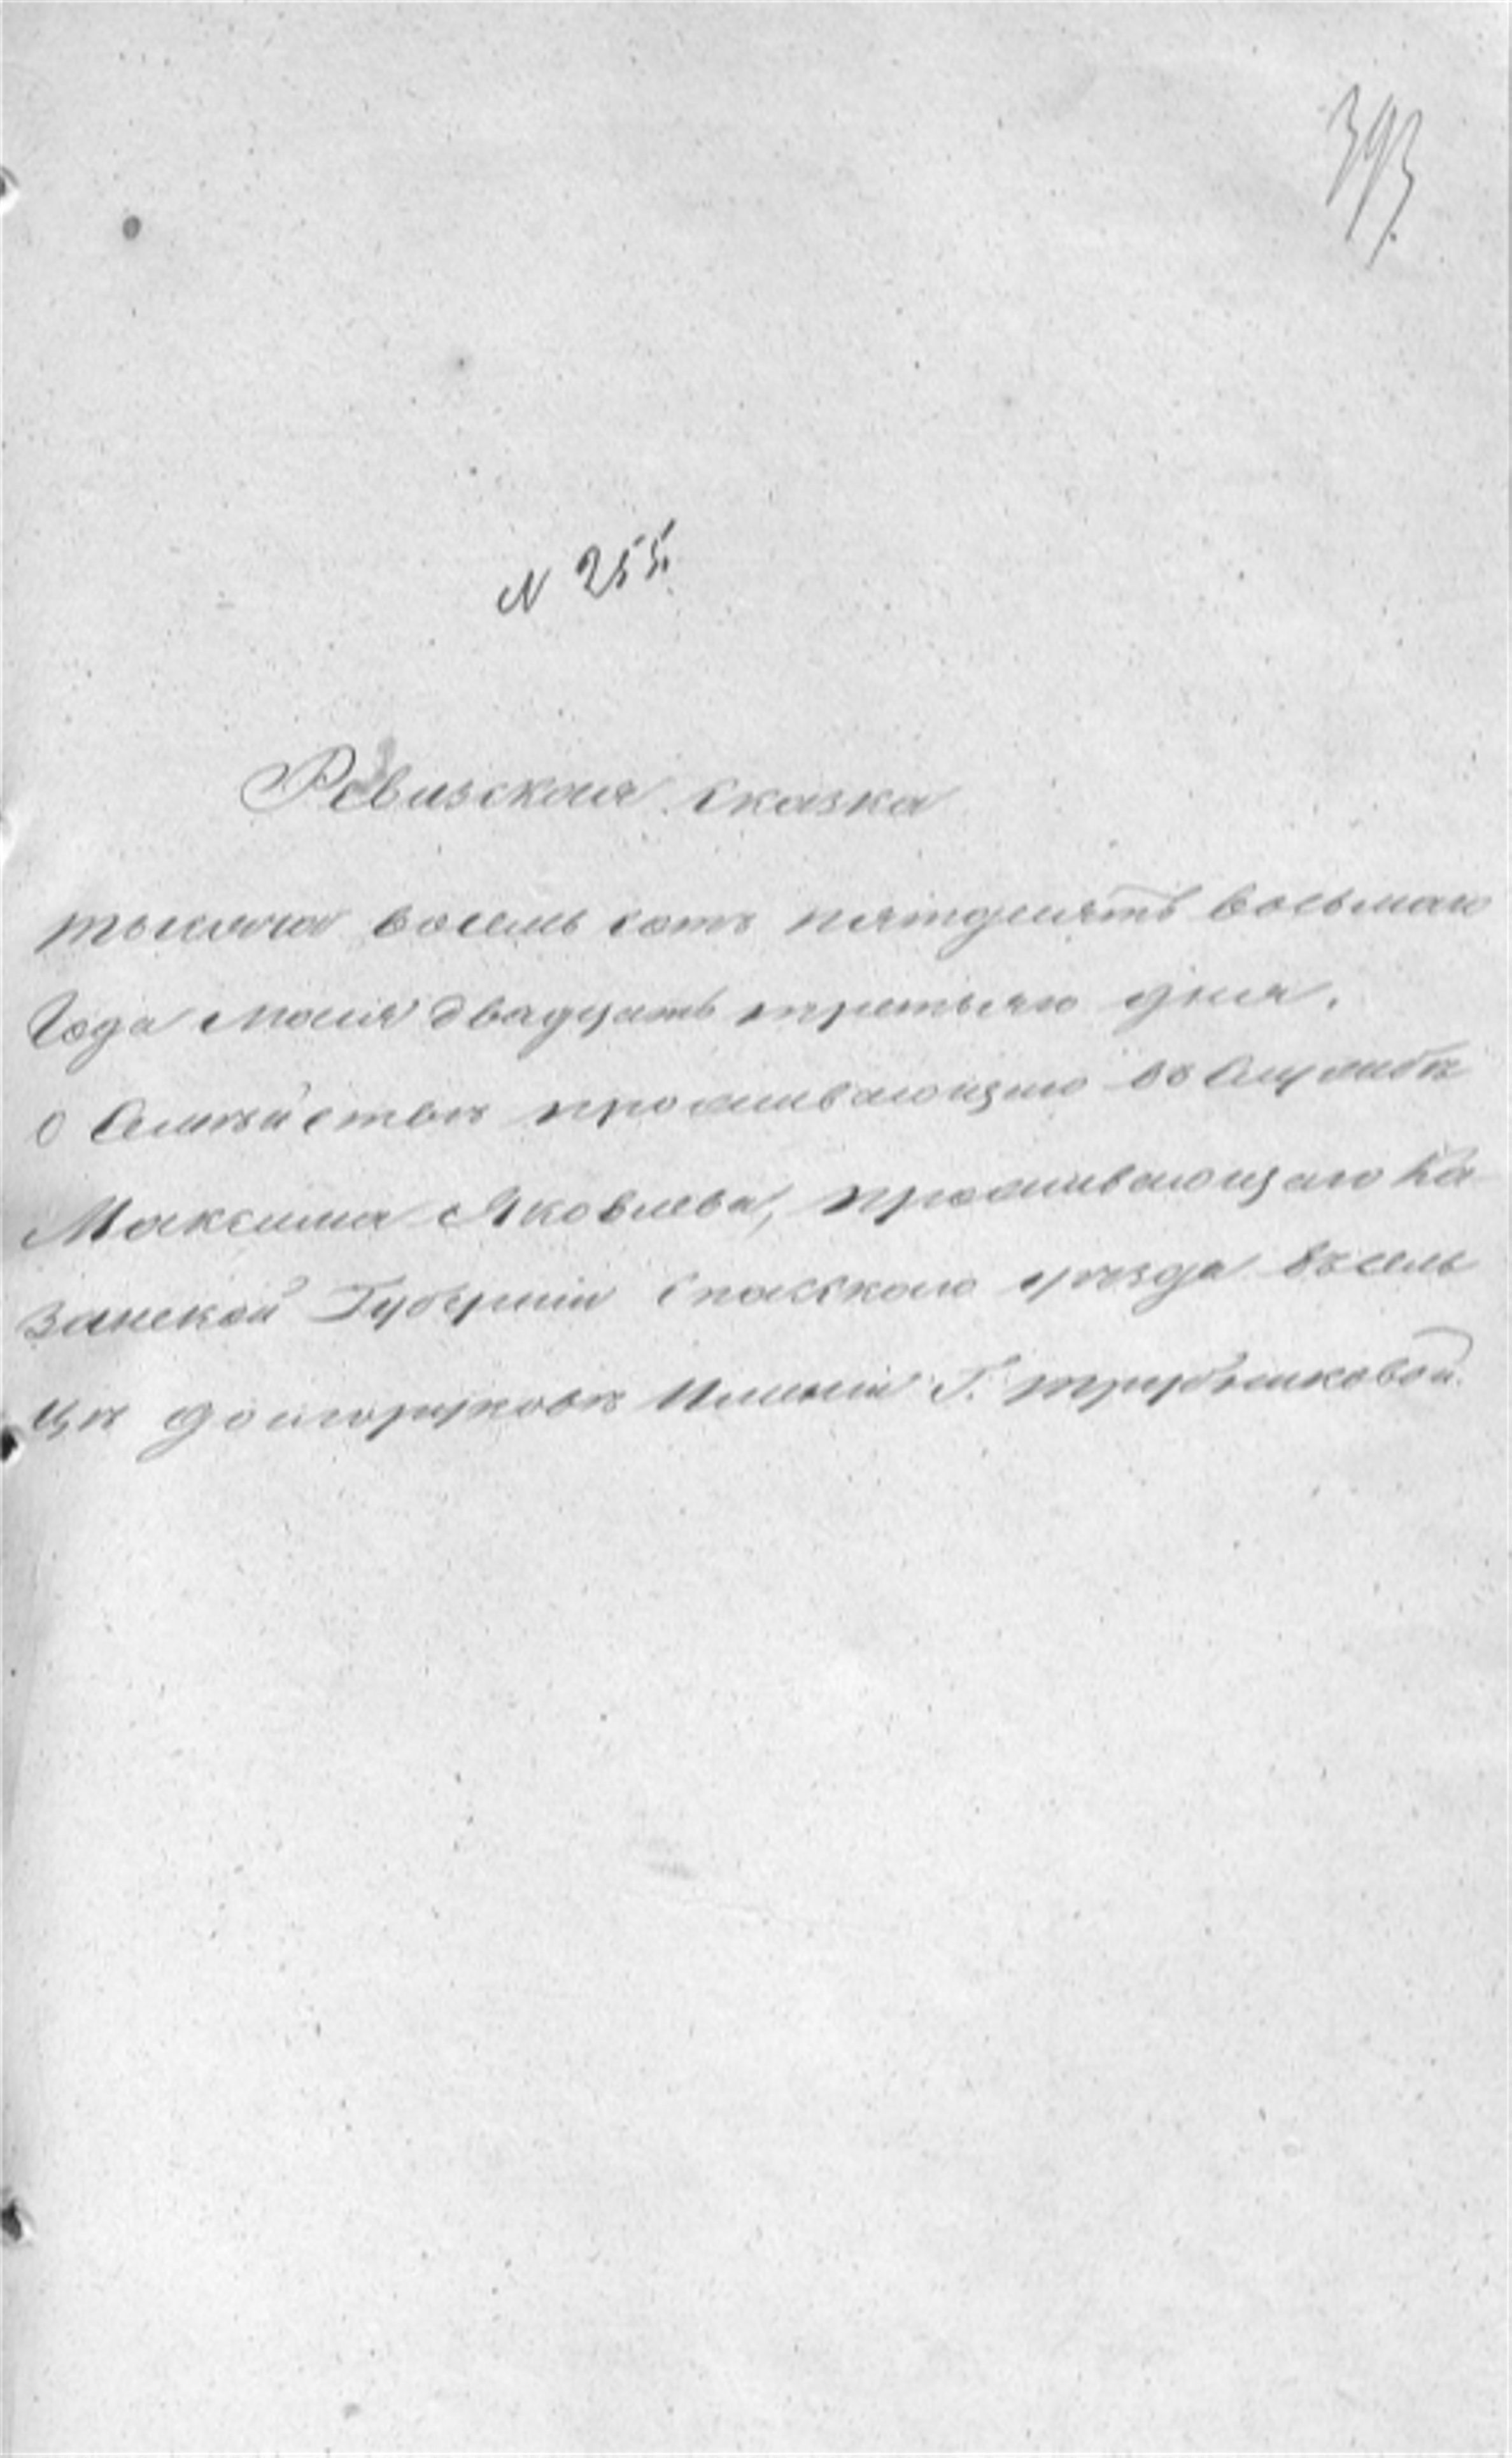 393.
N 255.
Ревизская сказка
тысяча восемь сотъ пятдесятъ восьмаго
Года Маия двадцать третьяго дня.
О Семействѣ проживающаго въ Службѣ
Максима Яковлева, проживающаго Ка
занской Губерніи Спасскаго уѣзда въ сель
цѣ Долгоруковѣ Имѣніи Г. Трубниковой.